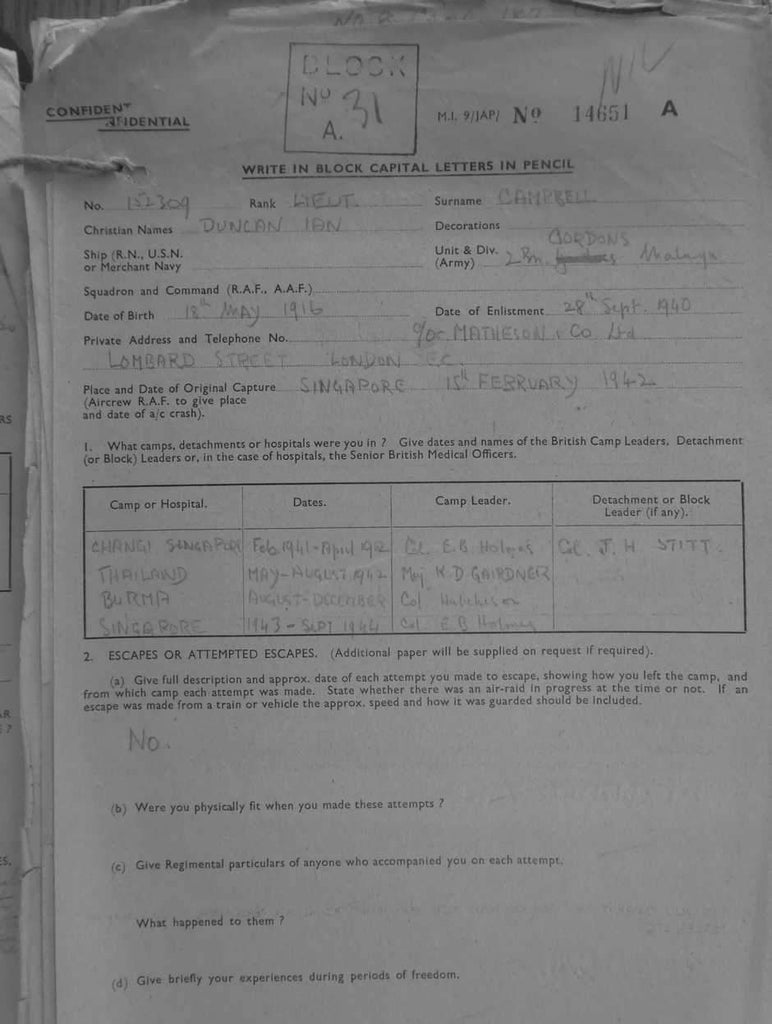 BLOCK
Nº 31
A.
CONFIDENT
NFIDENTIAL
M.I. 9/JAP/ Nº 14651 A
WRITE IN BLOCK CAPITAL LETTERS IN PENCIL
No. 152309 Rank LIEUT. Surname CAMPBELL
Christian Names DUNCAN IAN Decorations
Ship (R.N., U.S.N. or Merchant Navy
Unit & Div. (Army) 2 Bn. GORDONS Malaya
Squadron and Command (R.A.F., A.A.F.)
Date of Birth 18th MAY 1916 Date of Enlistment 28th Sept. 1940
Private Address and Telephone No. MATHESON & Co Ltd
LOMBARD STREET LONDON E.C.
Place and Date of Original Capture SINGAPORE 15th FEBRUARY 1942
(Aircrew R.A.F. to give place
and date of a/c crash).
1. What camps, detachments or hospitals were you in ? Give dates and names of the British Camp Leaders, Detachment
(or Block) Leaders or, in the case of hospitals, the Senior British Medical Officers.
Camp or Hospital. Dates. Camp Leader. Detachment or Block Leader (if any).
CHANGI SINGAPORE Feb 1941 - April 1942 Col. E.B Holmes Col. J. H. STITT.
THAILAND MAY - AUGUST 1942 Maj K D GAIRDNER
BURMA AUGUST - DECEMBER Col
SINGAPORE 1943 - SEPT 1944 Col E B Holmes
2. ESCAPES OR ATTEMPTED ESCAPES. (Additional paper will be supplied on request if required).
(a) Give full description and approx. date of each attempt you made to escape, showing how you left the camp, and
from which camp each attempt was made. State whether there was an air-raid in progress at the time or not. If an
escape was made from a train or vehicle the approx. speed and how it was guarded should be included.
No.
(b) Were you physically fit when you made these attempts ?
(c) Give Regimental particulars of anyone who accompanied you on each attempt.
What happened to them ?
(d) Give briefly your experiences during periods of freedom.